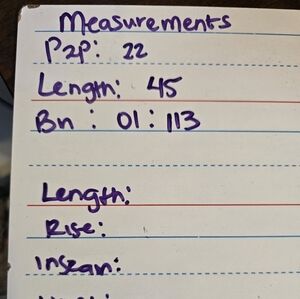 Measurements
P2P: 22
Length: 45
Bn : 01 : 113
Length:
Rise:
Inseam: